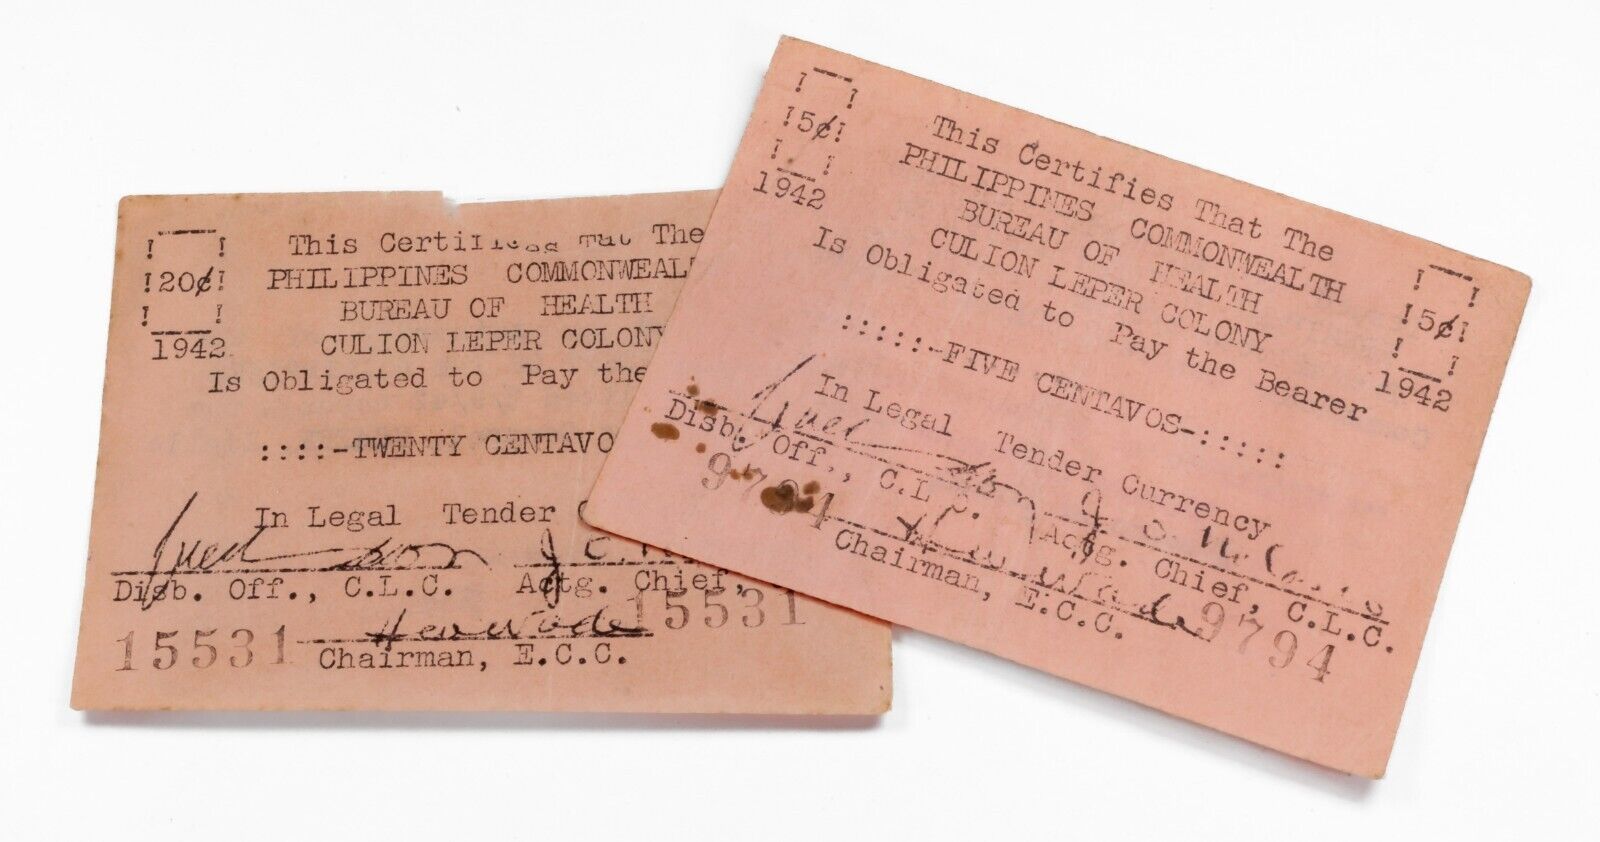 20¢
1942
This Certifies That The
PHILIPPINES COMMONWEALT
BUREAU OF HEALTH
CULION LEPER COLONY
Is Obligated to Pay the
:::::-TWENTY CENTAVO
In Legal Tender
Disb. Off., C.L.C. Actg. Chief,
15531 15531
Chairman, E.C.C.
5¢ 5¢
1942 1942
This Certifies That The
PHILIPPINES COMMONWEALTH
BUREAU OF HEALTH
CULION LEPER COLONY
Is Obligated to Pay the Bearer
:::::-FIVE CENTAVOS-:::::
In Legal Tender Currency
Disb. Off., C.L.C. Actg. Chief, C.L.C.
9794 9794
Chairman, E.C.C.